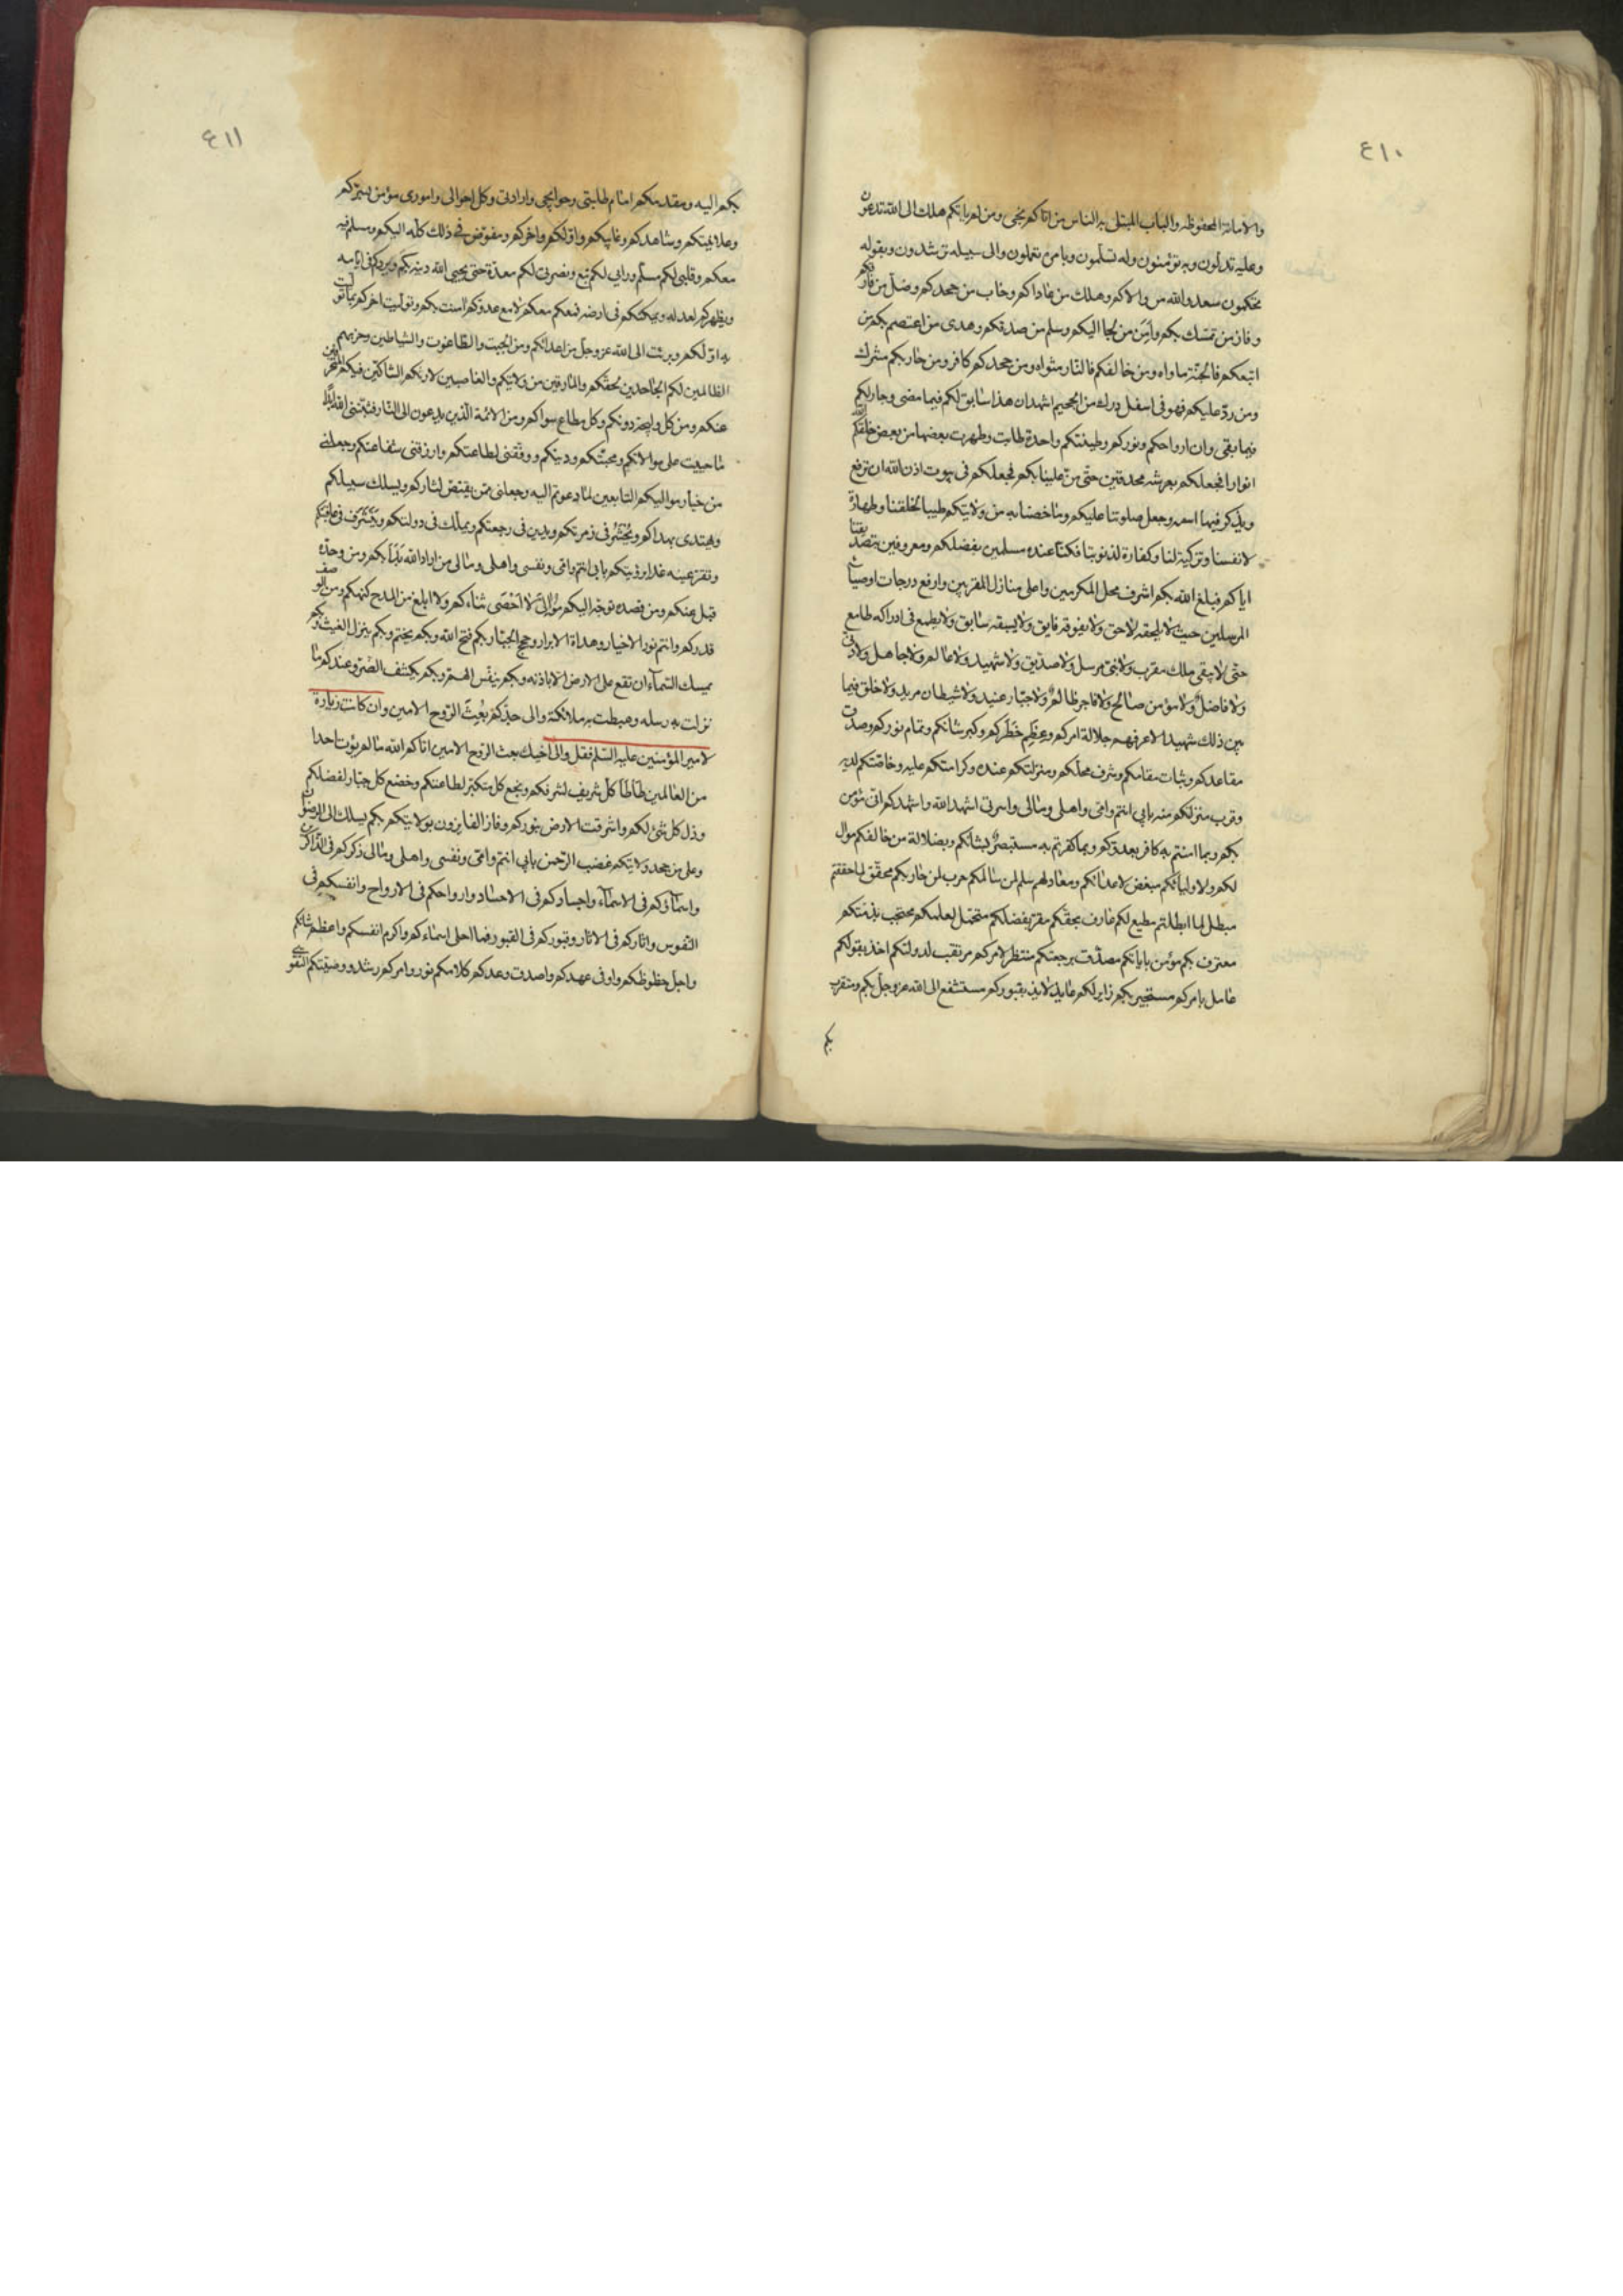 ٤١٠
والامانة المحفوظة والباب المبتلى به الناس من اتاكم نجى ومن لم ياتكم هلك الى الله تدعون
وعليه تدلون وبه تؤمنون وله تسلمون وبامره تعملون والى سبيله ترشدون وبقوله
تحكمون سعد والله من والاكم وهلك من عاداكم وخاب من جحدكم وضل من فارقكم
وفاز من تمسك بكم وأمِنَ من لجا اليكم وسلم من صدقكم وهدى من اعتصم بكم من
اتبعكم فالجنّة ماواه ومن خالفكم فالنّار مثواه ومن جحدكم كافر ومن حاربكم مشرك
ومن ردّ عليكم فهو فى اسفل درك من الجحيم اشهد ان هذا سابق لكم فيما مضى وجار لكم
فيما بقى وان ارواحكم ونوركم وطينتكم واحدة طابت وطهرت بعضها من بعض خلقكم الله
انوارا فجعلكم بعرشه محدقين حتّى منّ علينا بكم فجعلكم فى بيوت اذن الله ان ترفع
ويذكر فيها اسمه وجعل صلوتنا عليكم وما خصنا به من ولايتكم طيبا لخلقنا وطهارة
لانفسنا وتزكية لنا وكفارة لذنوبنا فكنّا عنده مسلمين بفضلكم ومعروفين بتصديقنا
اياكم فبلغ الله بكم اشرف محل المكرمين واعلى منازل المقربين وارفع درجات اوصياء
المرسلين حيث لا يلحقه لاحق ولا يفوقه فايق ولا يسبقه سابق ولا يطمع فى ادراكه طامع
حتّى لا يبقى ملك مقرب ولا نبىّ مرسل ولا صدّيق ولا شهيد ولا عالم ولا جاهل ولا دنىّ
ولا فاضل ولا مؤمن صالح ولا فاجر طالح ولا جبّار عنيد ولا شيطان مريد ولا خلق فيما
بين ذلك شهيد الا عرفهم جلالة امركم وعِظَم خَطَركم وكبر شانكم وتمام نوركم وصدق
مقاعدكم وثبات مقامكم وشرف محلّكم ومنزلتكم عنده وكرامتكم عليه وخاصّتكم لديه
وقرب منزلكم منه بابى انتم وامّى واهلى ومالى واسرتى اشهد الله واشهدكم انّى مؤمن
بكم وبما امنتم به كافر بعدوّكم وبما كفرتم به مستبصر بشانكم وبضلالة من خالفكم موال
لكم ولاوليائكم مبغض لاعدائكم ومعاد لهم سلم لمن سالمكم حرب لمن حاربكم محقّق لما حققتم
مبطل لما ابطلتم مطيع لكم عارف بحقّكم مقرّ بفضلكم محتمل لعلمكم محتجب بذمّتكم
معترف بكم مؤمن باياتكم مصدّق برجعتكم منتظر لامركم مرتقب لدولتكم اخذ بقولكم
عامل بامركم مستجير بكم زاير لكم عايذ لائذ بقبوركم مستشفع الى الله عز وجلّ بكم ومتقرب
بكم
٤١١
بكم اليه ومقدمكم امام طلبتى وحوايجى وارادتى وكل احوالى وامورى مؤمن بسرّكم
وعلانيتكم وشاهدكم وغايبكم واوّلكم واخركم ومفوّض فى ذلك كلّه اليكم ومسلم فيه
معكم وقلبى لكم مسلّم ورايى لكم تبع ونصرتى لكم معدّة حتى يحيى الله دينه بكم ويردّكم فى ايامه
ويظهركم لعدله ويمكنكم فى ارضه فمعكم معكم لا مع عدوكم امنت بكم وتوليت اخركم بما تولّيت
به اوّلكم وبرئت الى الله عز وجلّ من اعدائكم ومن الجبت والطّاغوت والشياطين وحزبهم
الظالمين لكم الجاحدين لحقّكم والمارقين من ولايتكم والغاصبين لارثكم الشاكّين فيكم المنحرفين
عنكم ومن كل وليجة دونكم وكل مطاع سواكم ومن الائمة الّذين يدعون الى النّار فثبّتنى الله ابدًا
ما حييت على موالاتكم ومحبّتكم ودينكم ووفّقنى لطاعتكم وارزقنى شفاعتكم وجعلنى
من خيار مواليكم التابعين لما دعوتم اليه وجعلنى ممّن يقتصّ اثاركم ويسلك سبيلكم
ويهتدى بهداكم ويُحْشَر فى زمرتكم ويكرّ فى رجعتكم ويملّك فى دولتكم ويُشَرَّف فى عافيتكم
وتقرّ عينه غدا برؤيتكم بابى انتم وامّى ونفسى واهلى ومالى من اراد الله بَدَأَ بكم ومن وحدّه
قبل عنكم ومن قصده توجّه اليكم موالىّ لا اُحْصى ثناءكم ولا ابلغ من المدح كنهكم ومن الوصف
قدركم وانتم نور الاخيار وهداة الابرار وحجج الجبّار بكم فتح الله وبكم يختم وبكم ينزل الغيث وبكم
يمسك السّماء ان تقع على الارض الا باذنه وبكم ينفّس الهمّ وبكم يكشف الضّر وعندكم ما
نزلت به رسله وهبطت به ملائكته والى جدّكم بُعِثَ الرّوح الامين وان كانت زيارة
لامير المؤمنين عليه السّلم فقل والى اخيك بعث الرّوح الامين اتاكم الله ما لم يؤت احدا
من العالمين طأطأ كلّ شريف لشرفكم وبخع كل متكبّر لطاعتكم وخضع كل جبّار لفضلكم
وذل كل شئ لكم واشرقت الارض بنوركم وفاز الفايزون بولايتكم بكم يسلك الى الرضوان
وعلى من جحد ولايتكم غضب الرّحمن بابى انتم وامّى ونفسى واهلى ومالى ذكركم فى الذّاكرين
واسماؤكم فى الاسمآء واجسادكم فى الاجساد وارواحكم فى الارواح وانفسكم فى
النّفوس واثاركم فى الاثار وقبوركم فى القبور فما احلى اسماءكم واكرم انفسكم واعظم شانكم
واجلّ حظوظكم واوفى عهدكم واصدق وعدكم كلامكم نور وامركم رشد ووصيّتكم التقوى